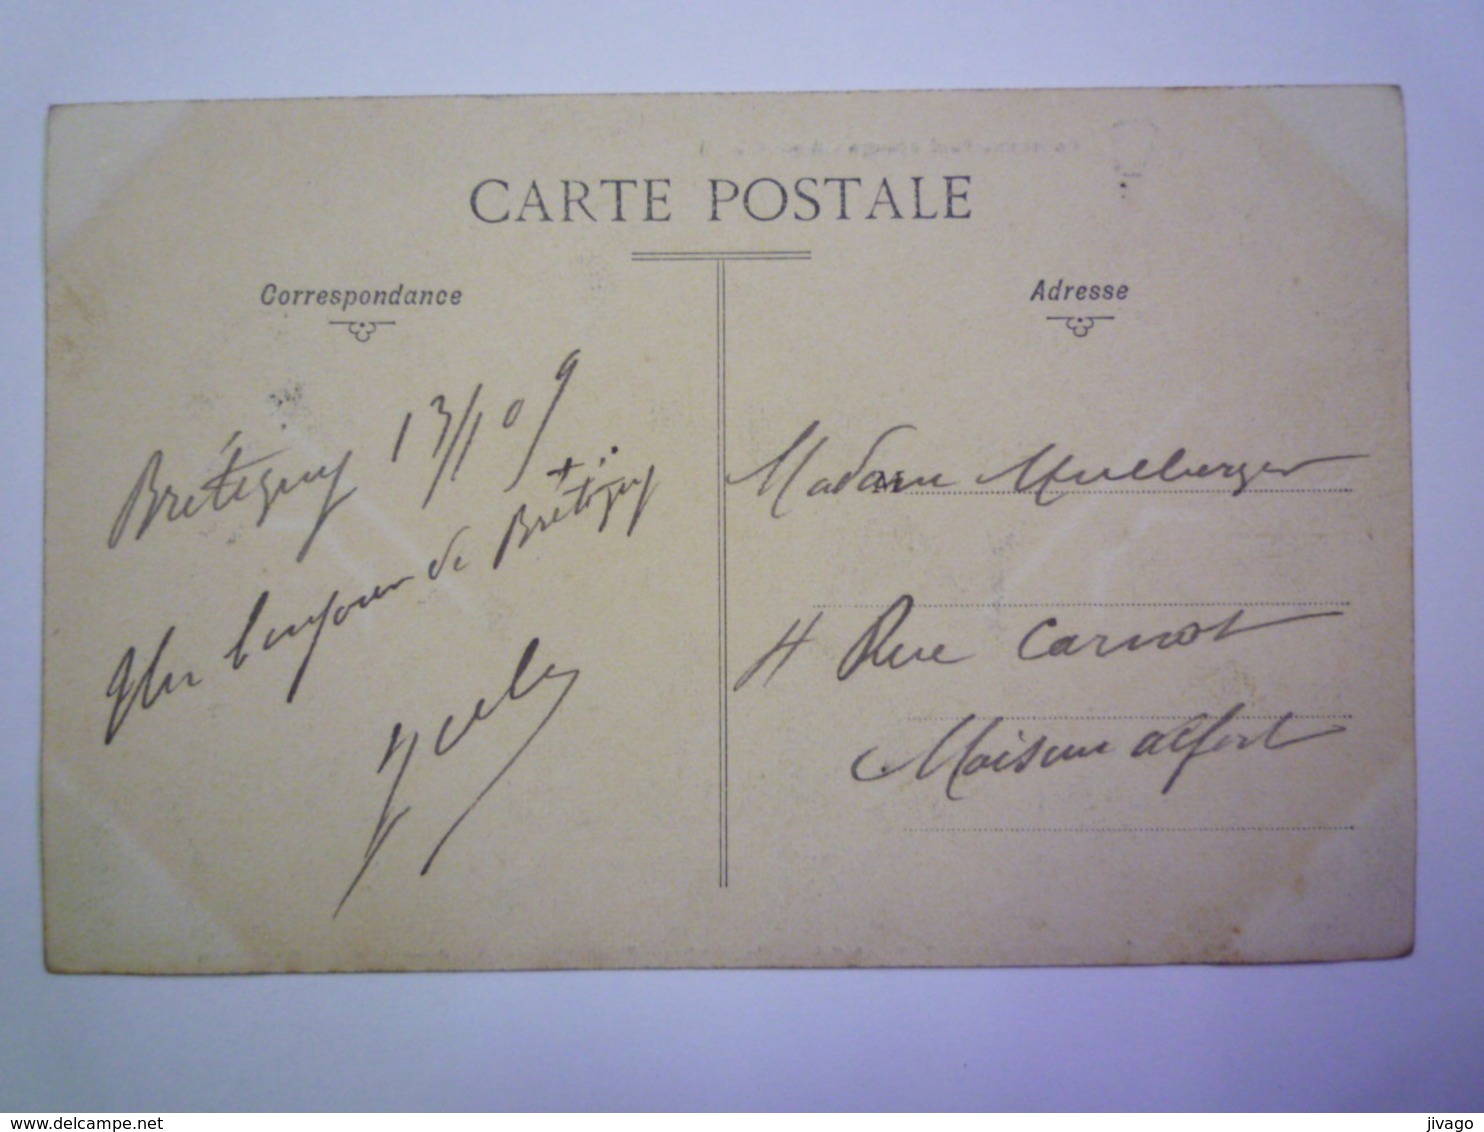 CARTE POSTALE
Correspondance
Adresse
Brétigny 13/10 9
Un bonjour de Brétigny
Madame Mulberger
4 Rue Carnot
Maison alfort
www.delcampe.net
jivago